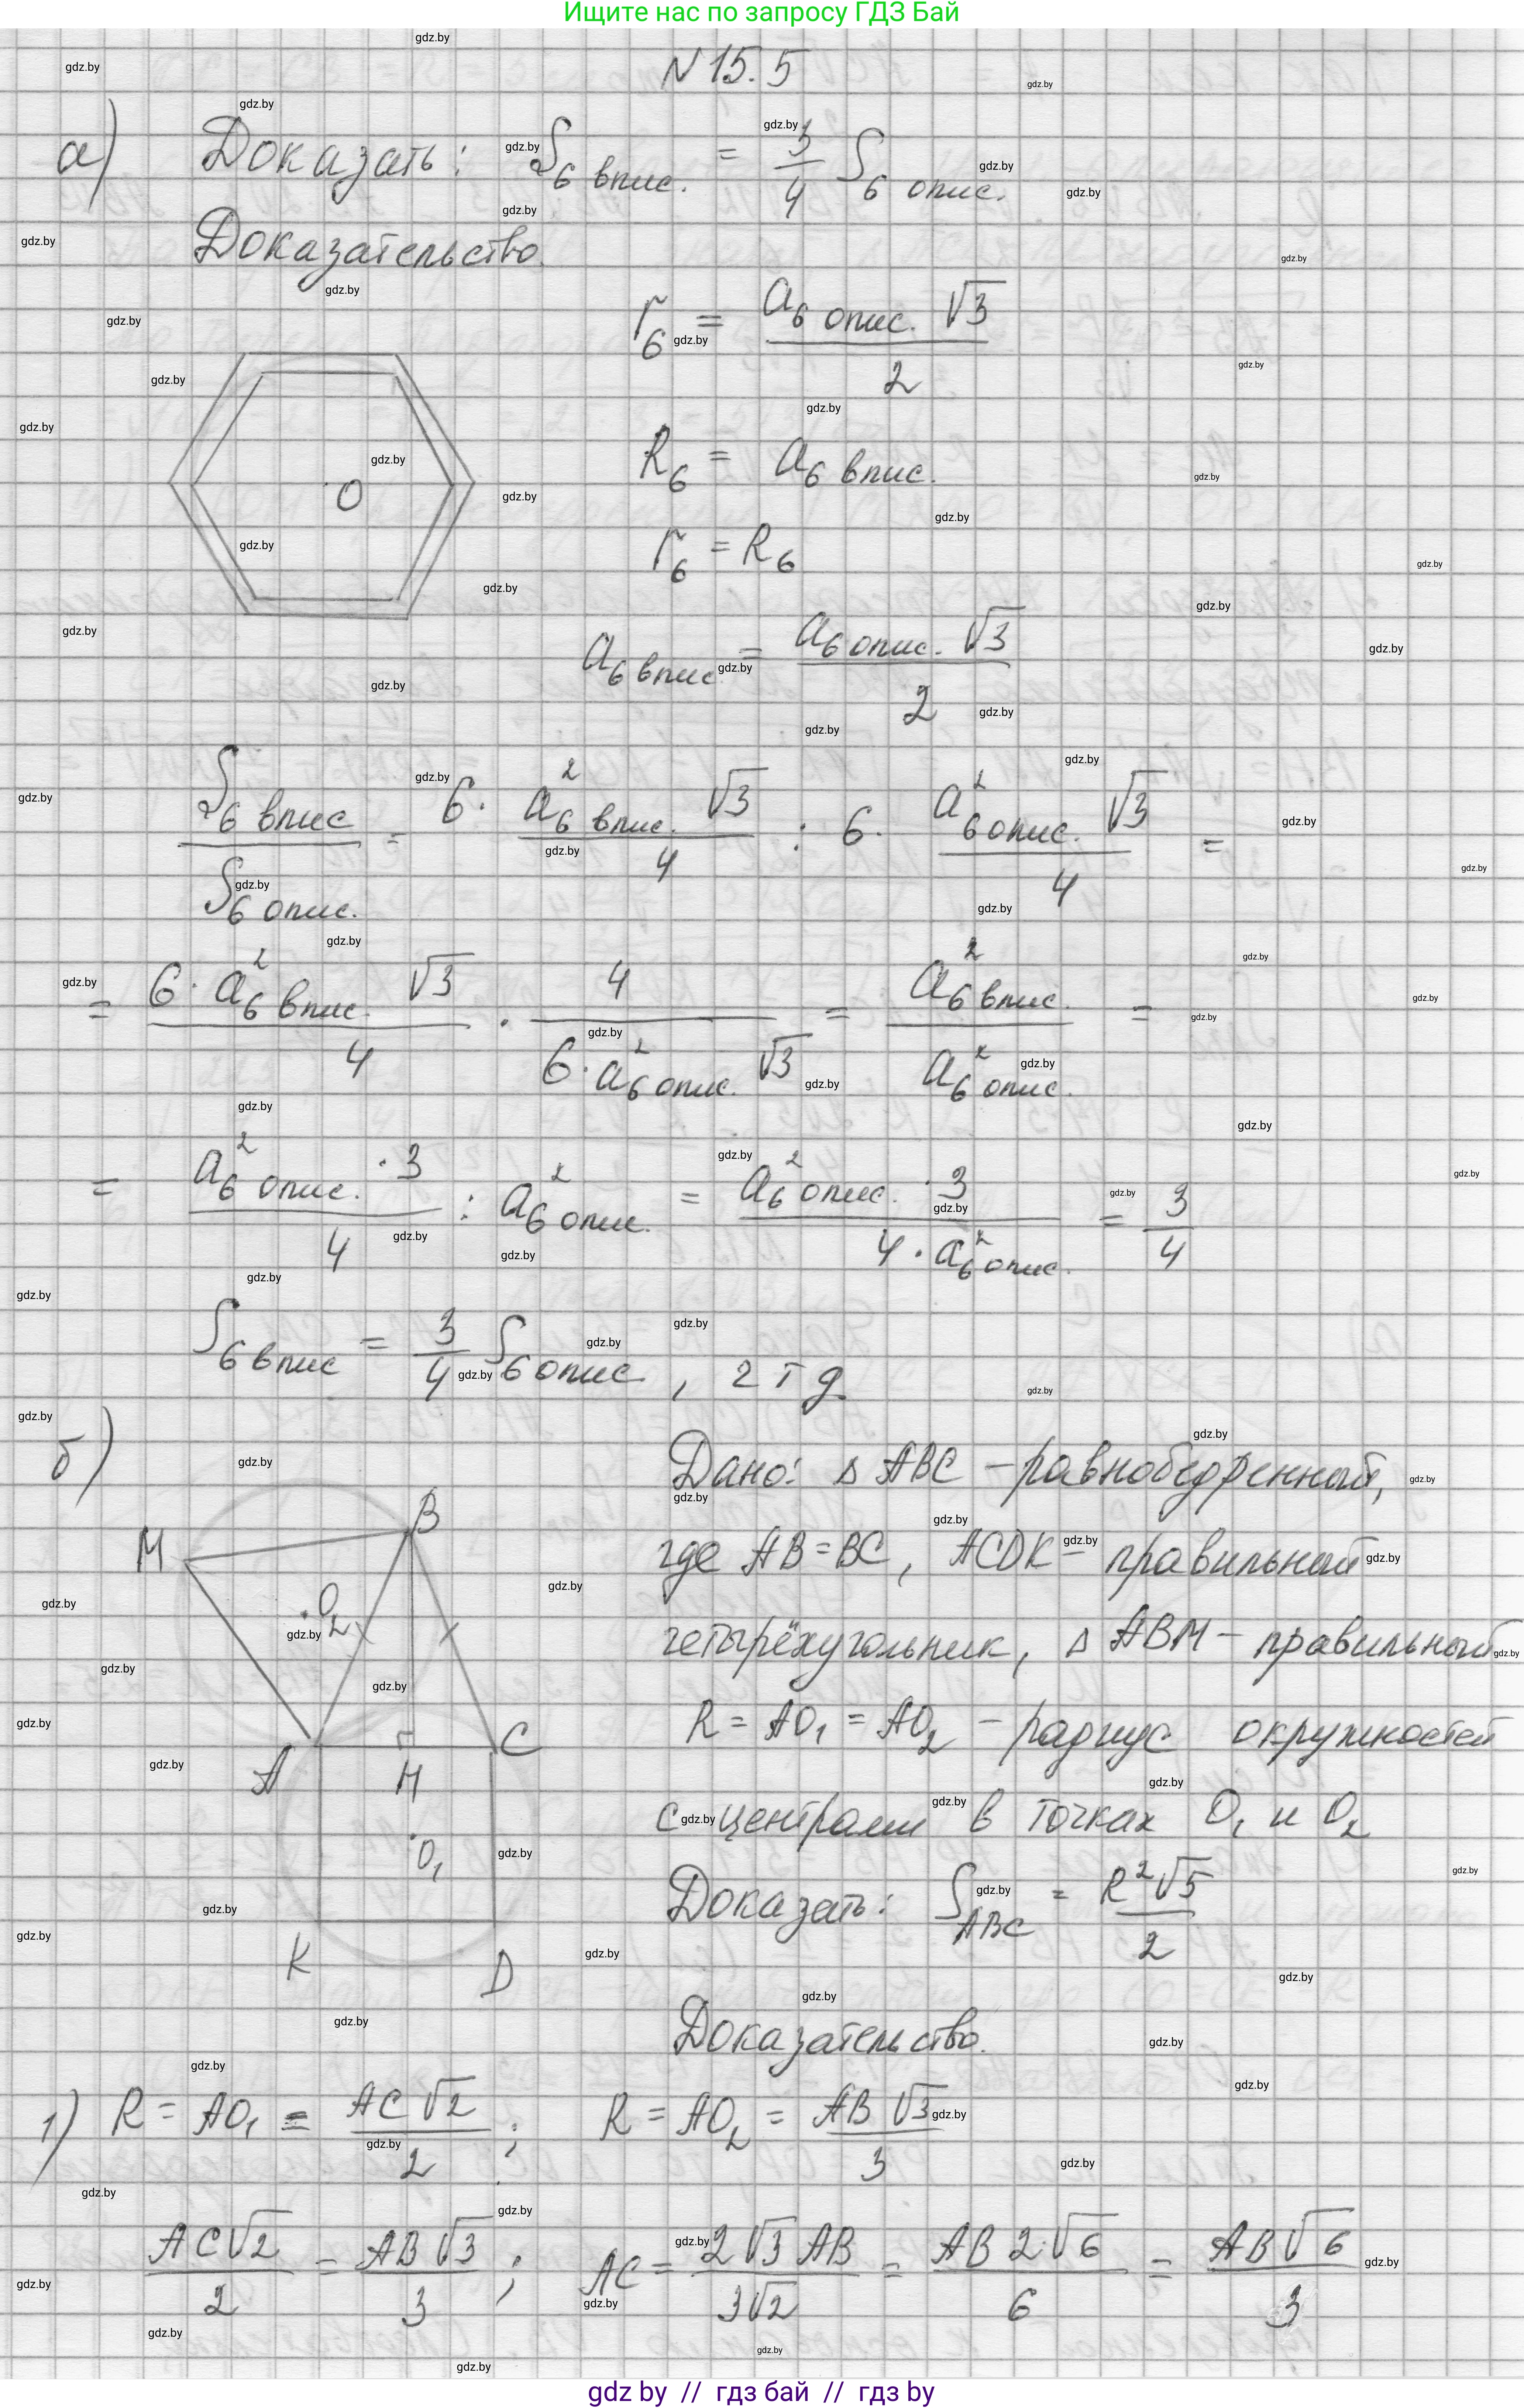 Ищите нас по запросу ГДЗ Бай
N 15.5
а) Доказать: S₆ впис. = 3/4 S₆ опис.
Доказательство.
r₆ = a₆ опис. √3 / 2
O
R₆ = a₆ впис.
r₆ = R₆
a₆ впис. = a₆ опис. √3 / 2
S₆ впис / S₆ опис. = 6 · a²₆ впис. √3 / 4 : 6 · a²₆ опис. √3 / 4 =
= 6 · a²₆ впис. √3 / 4 · 4 / 6 · a²₆ опис. √3 = a²₆ впис. / a²₆ опис. =
= a²₆ опис. · 3 / 4 : a²₆ опис. = a²₆ опис. · 3 / 4 · a²₆ опис. = 3/4
S₆ впис = 3/4 S₆ опис, чтд.
б)
Дано: Δ ABC – равнобедренный,
где AB = BC, ACDK – правильный
четырёхугольник, Δ ABM – правильный
R = AO₁ = AO₂ – радиус окружностей
с центрами в точках O₁ и O₂
Доказать: S ABC = R²√5 / 2
M B O₂ A H C O₁ K D
Доказательство.
1) R = AO₁ = AC √2 / 2 ; R = AO₂ = AB √3 / 3
AC√2 / 2 = AB √3 / 3 ; AC = 2√3 AB / 3√2 = AB 2·√6 / 6 = AB√6 / 3
gdz by // гдз бай // гдз by